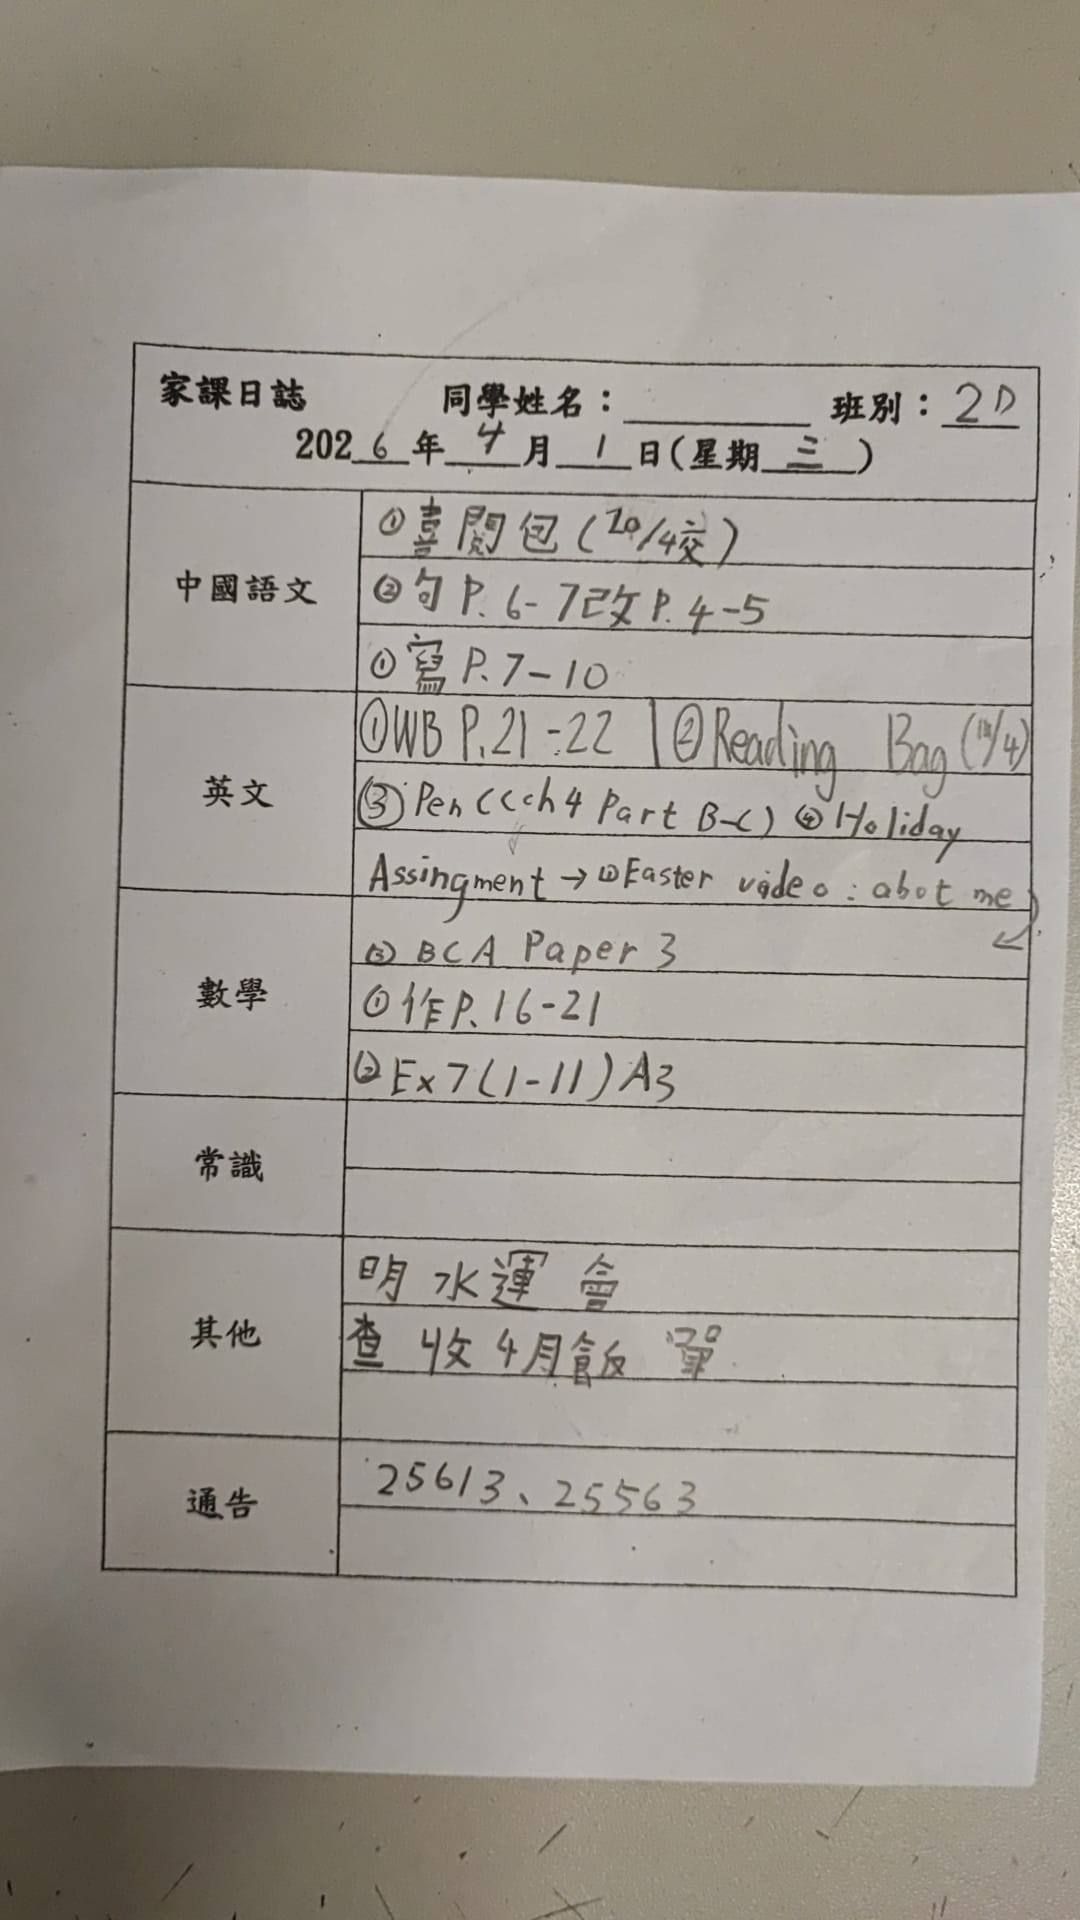 家課日誌 同學姓名： 班別：2D
2026年4月1日(星期三)
中國語文
①喜閱包(20/4交)
②句P.6-7改P.4-5
①寫P.7-10
英文
①WB P.21-22 | ②Reading Bag (/4)
③Pen (Ch4 Part B-C) ④Holiday
Assingment → ①Easter video : abot me
② BCA Paper 3
數學
①作P.16-21
②Ex7(1-11)A3
常識
其他
明水運會
查收4月飯單
通告
25613、25563